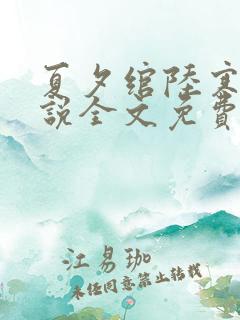 夏夕绾陆寒
说全文免费
江易珈
未经同意禁止转载